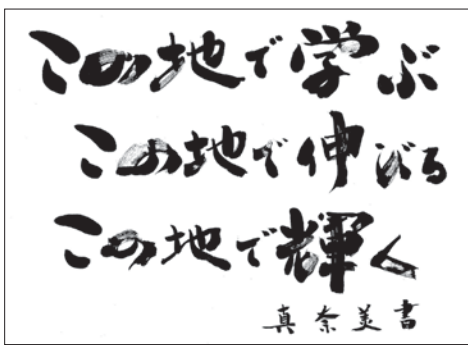 この地で学ぶ
この地で伸びる
この地で輝く
真奈美書